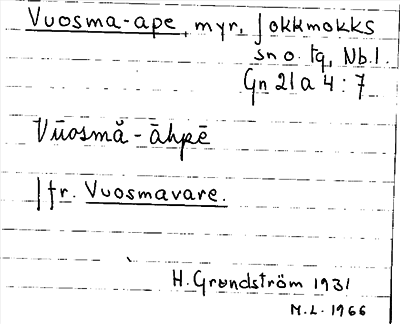 Vuosma-ape, myr, Jokkmokks
sn o. tg, Nb.l.
Gn 21 a 4:7
Vūosmă - āhpē
Jfr. Vuosmavare.
H. Grundström 1931
M.L. 1966